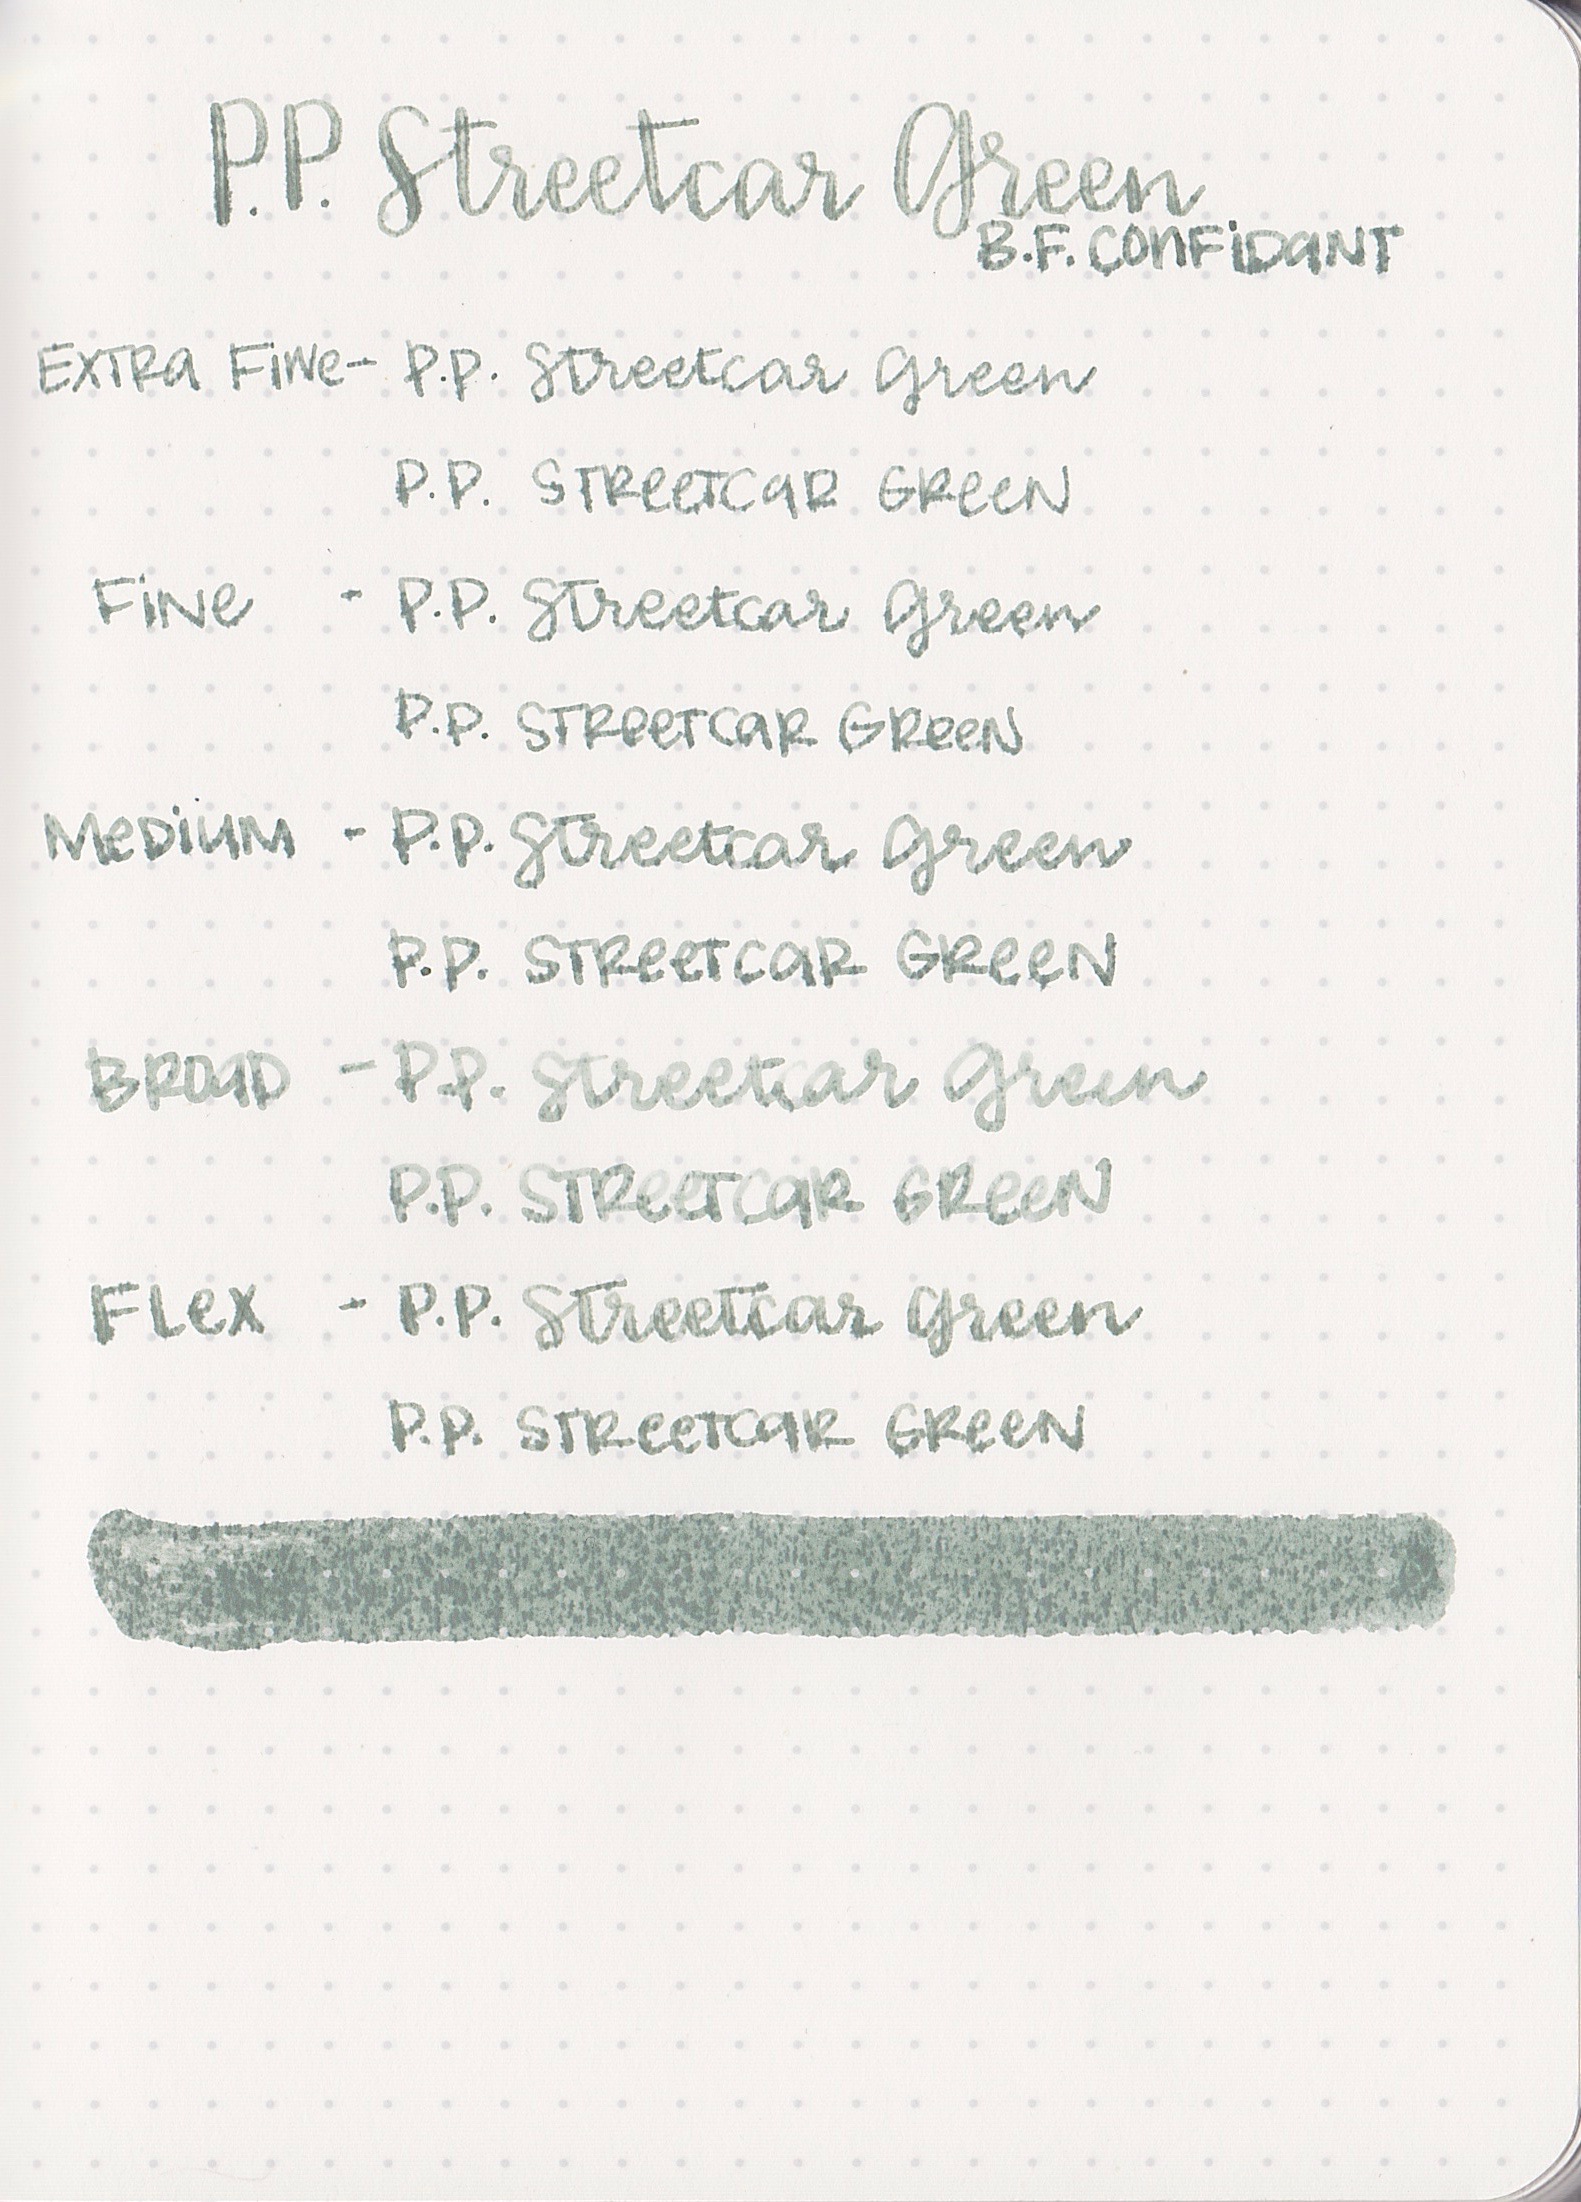 P.P. Streetcar Green
B.F. Confidant
Extra Fine - P.P. Streetcar Green
P.P. Streetcar Green
Fine - P.P. Streetcar Green
P.P. Streetcar Green
Medium - P.P. Streetcar Green
P.P. Streetcar Green
Broad - P.P. Streetcar Green
P.P. Streetcar Green
Flex - P.P. Streetcar Green
P.P. Streetcar Green